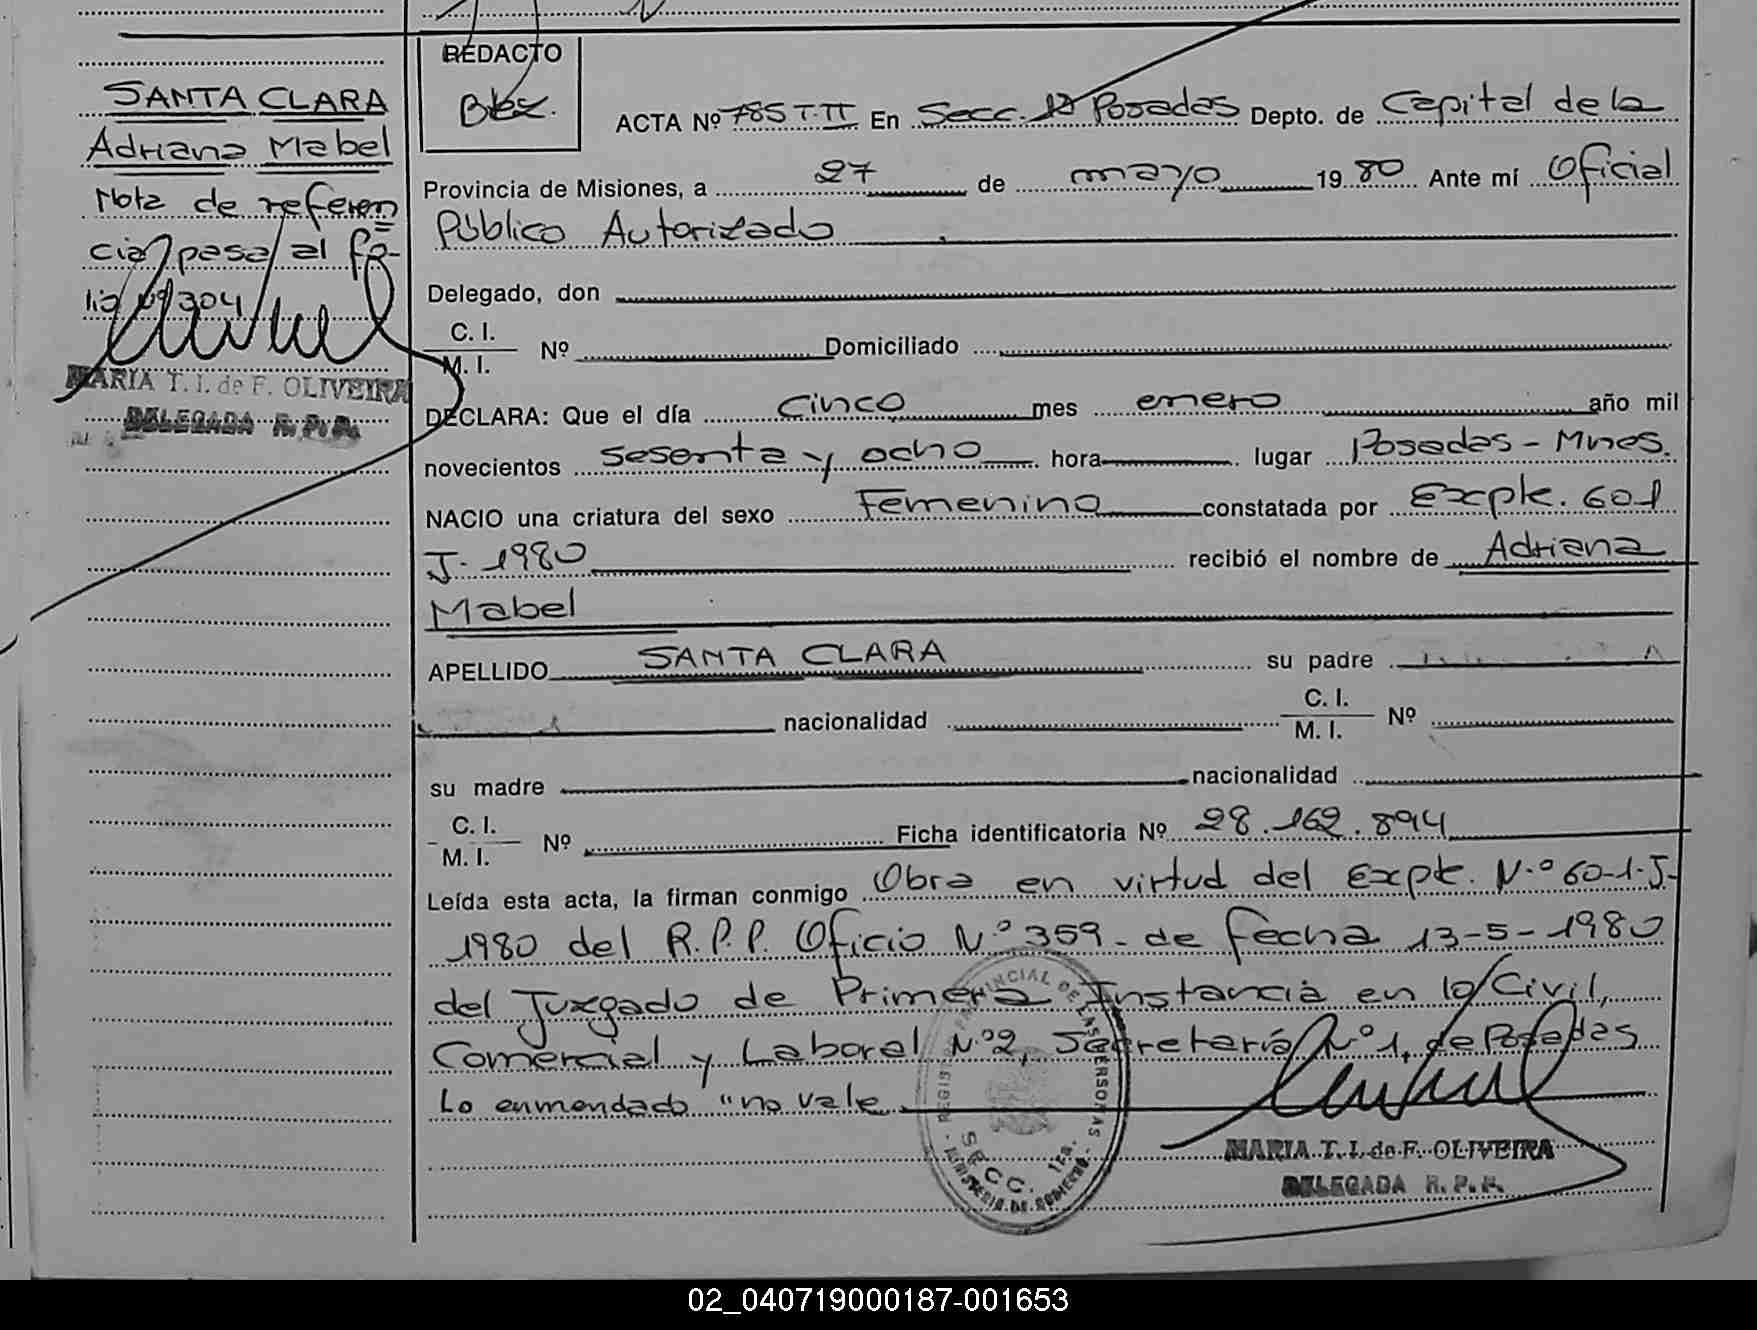 SANTA CLARA
Adriana Mabel
Nota de referen
cia pasa al fo-
lio Nº 304
MARIA T. I. de F. OLIVEIRA
DELEGADA R. P. P.
REDACTO
ACTA Nº 785 T-II En Secc. 1ª Posadas Depto. de Capital de la
Provincia de Misiones, a 27 de mayo 1980 Ante mí Oficial
Público Autorizado
Delegado, don
C. I.
M. I. Nº Domiciliado
DECLARA: Que el día cinco mes enero año mil
novecientos sesenta y ocho hora lugar Posadas - Mnes.
NACIO una criatura del sexo Femenino constatada por Expte. 601
J. 1980 recibió el nombre de Adriana
Mabel
APELLIDO SANTA CLARA su padre
nacionalidad C. I.
M. I. Nº
su madre nacionalidad
C. I.
M. I. Nº Ficha identificatoria Nº 28.162.894
Leída esta acta, la firman conmigo Obra en virtud del Expte. N.º 60-1-J-
1980 del R.P.P. Oficio Nº 359 - de fecha 13-5-1980
del Juzgado de Primera Instancia en lo Civil,
Comercial y Laboral Nº 2, Secretaría Nº 1, de Posadas
Lo enmendado "no vale
REGISTRO PROVINCIAL DE LAS PERSONAS
SECC. 1ra.
MINISTERIO DE GOBIERNO
MARIA T. I. de F. OLIVEIRA
DELEGADA R. P. P.
02_040719000187-001653